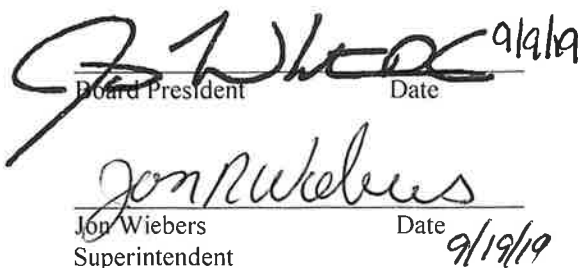 9/9/19
Board President Date
Jon R Wiebers
Jon Wiebers Date
Superintendent 9/19/19